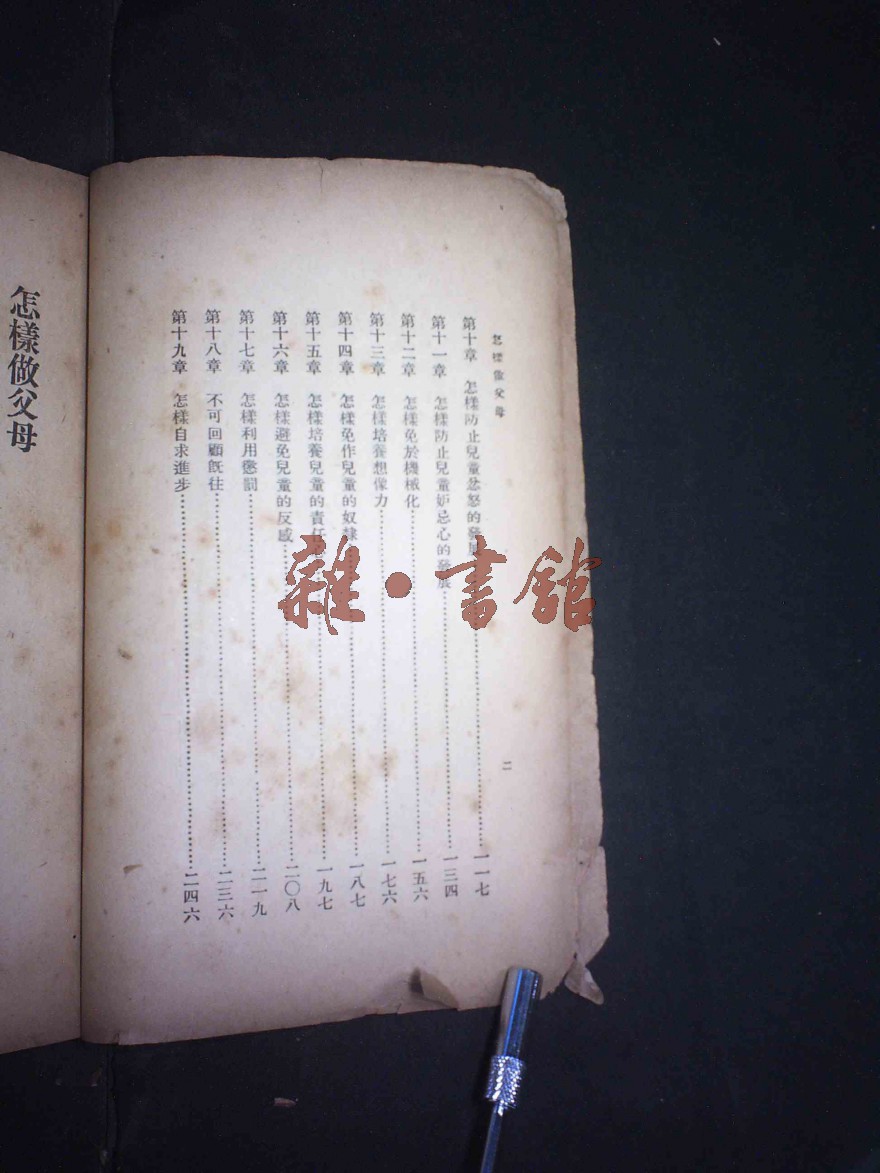 怎樣做父母
二
第十章 怎樣防止兒童忿怒的發展⋯⋯一一七
第十一章 怎樣防止兒童妒忌心的發展⋯⋯一三四
第十二章 怎樣免於機械化⋯⋯一五六
第十三章 怎樣培養想像力⋯⋯一七六
第十四章 怎樣免作兒童的奴隸⋯⋯一八七
第十五章 怎樣培養兒童的責任⋯⋯一九七
第十六章 怎樣避免兒童的反感⋯⋯二〇八
第十七章 怎樣利用懲罰⋯⋯二一九
第十八章 不可回顧既往⋯⋯二三六
第十九章 怎樣自求進步⋯⋯二四六
怎樣做父母
雜·書館